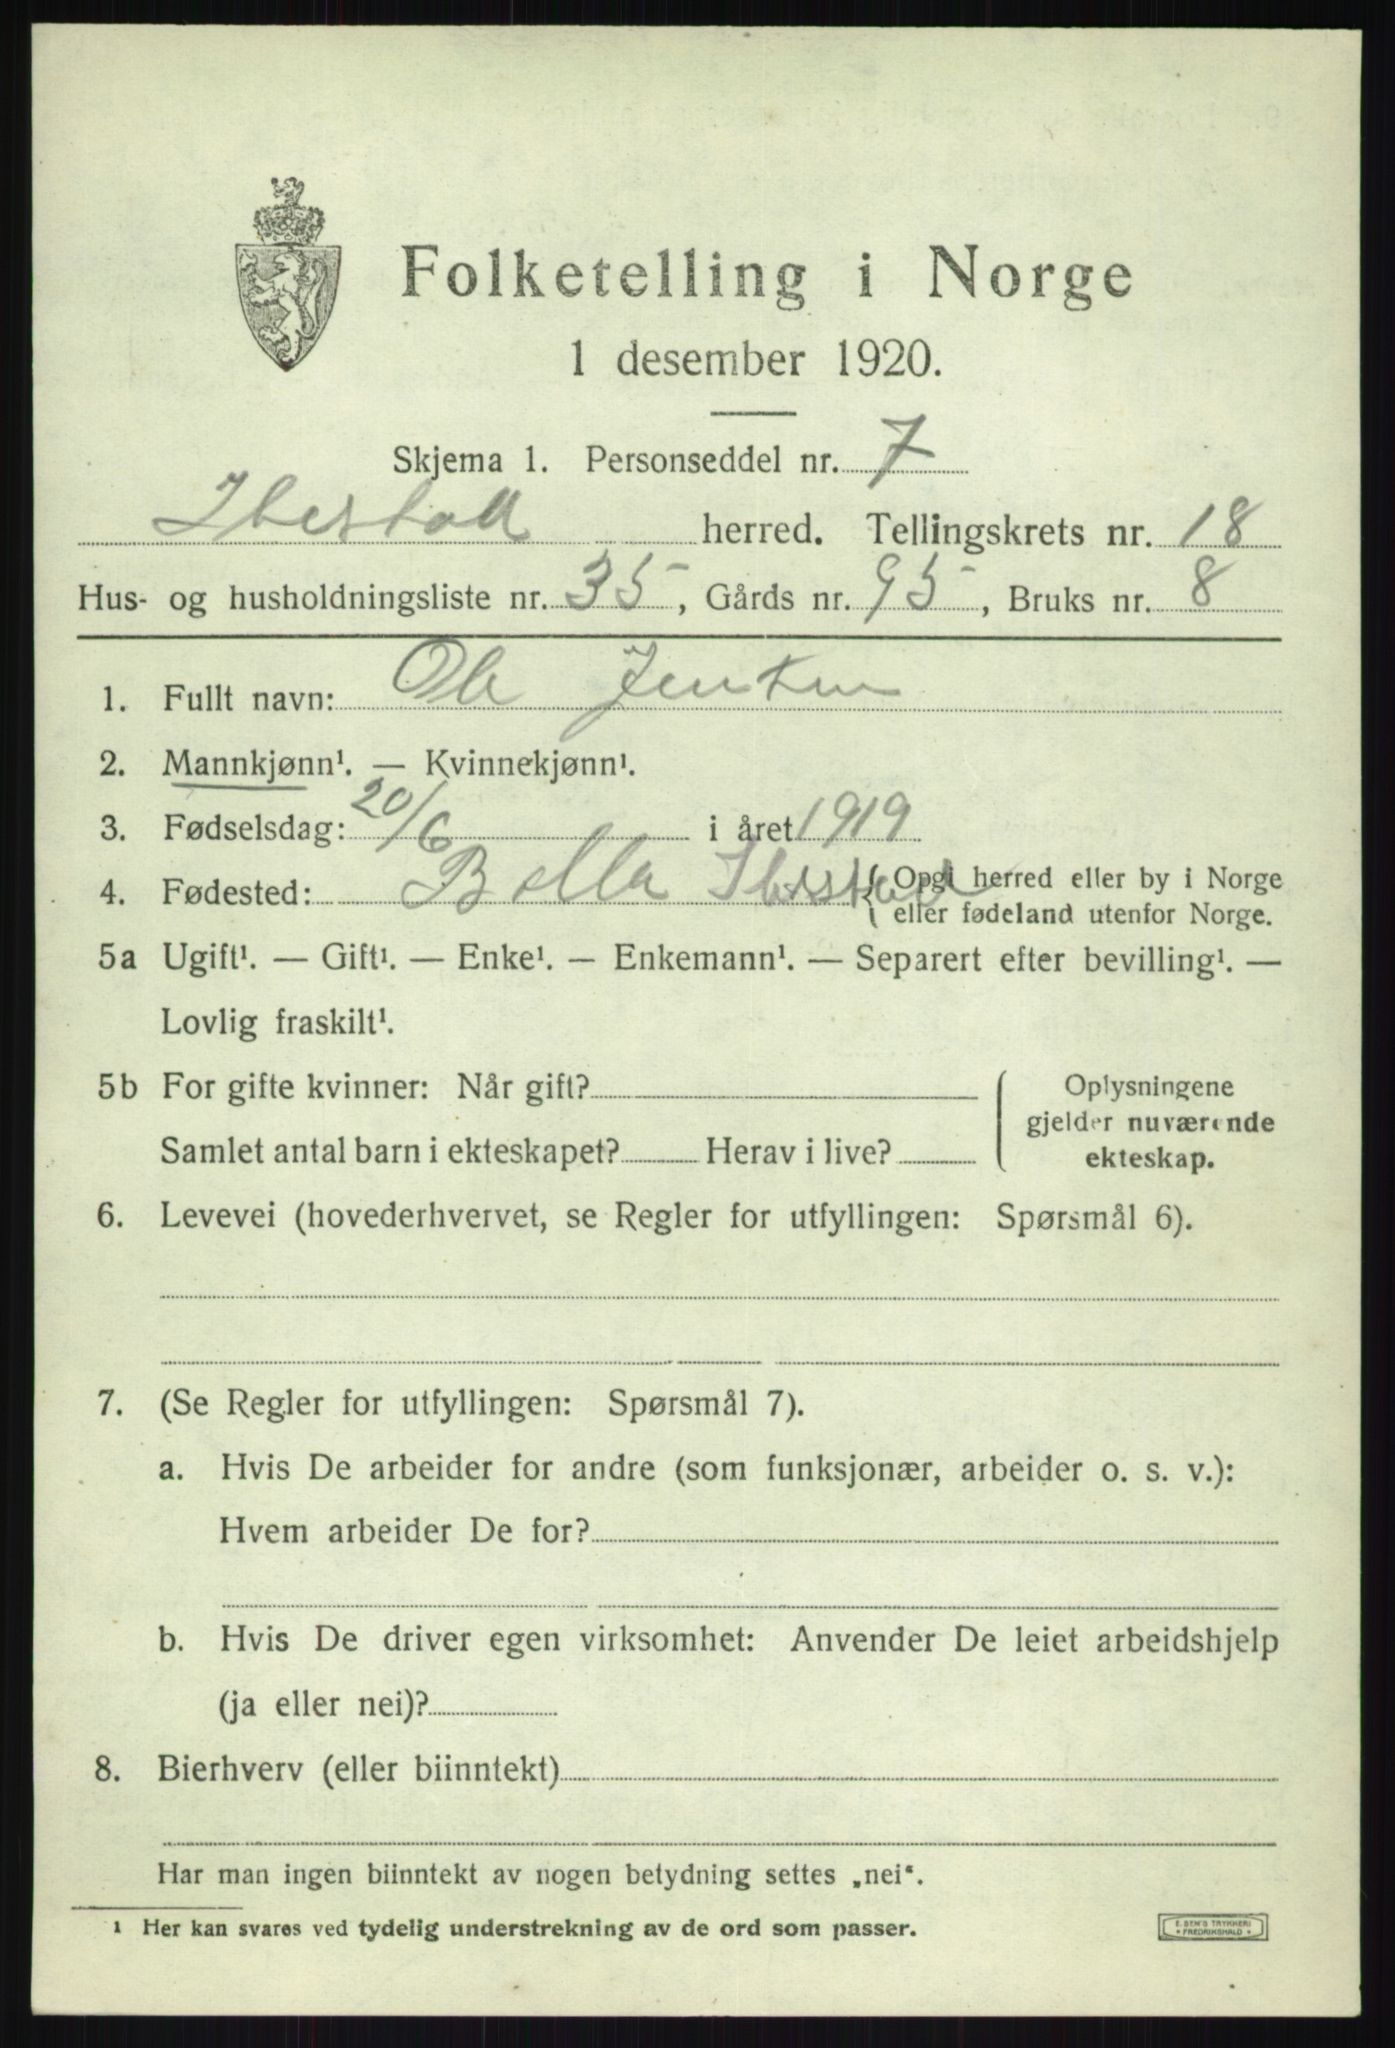 Folketelling i Norge
1 desember 1920.
Skjema 1. Personseddel nr. 7
Ibestad herred. Tellingskrets nr. 18
Hus- og husholdningsliste nr. 35, Gårds nr. 95, Bruks nr. 8
1. Fullt navn: Ole Jensen
2. Mannkjønn¹. — Kvinnekjønn¹.
3. Fødselsdag: 20/6 i året 1919
4. Fødested: Ibestad { Opgi herred eller by i Norge
eller fødeland utenfor Norge.
5a Ugift¹. — Gift¹. — Enke¹. — Enkemann¹. — Separert efter bevilling¹. —
Lovlig fraskilt¹.
5b For gifte kvinner: Når gift?
Samlet antal barn i ekteskapet? Herav i live?
Oplysningene
gjelder nuværende
ekteskap.
6. Levevei (hovederhvervet, se Regler for utfyllingen: Spørsmål 6).
7. (Se Regler for utfyllingen: Spørsmål 7).
a. Hvis De arbeider for andre (som funksjonær, arbeider o. s. v.):
Hvem arbeider De for?
b. Hvis De driver egen virksomhet: Anvender De leiet arbeidshjelp
(ja eller nei)?
8. Bierhverv (eller biinntekt)
Har man ingen biinntekt av nogen betydning settes „nei“.
¹ Her kan svares ved tydelig understrekning av de ord som passer.
E. SEM'S TRYKKERI
FREDRIKSHALD